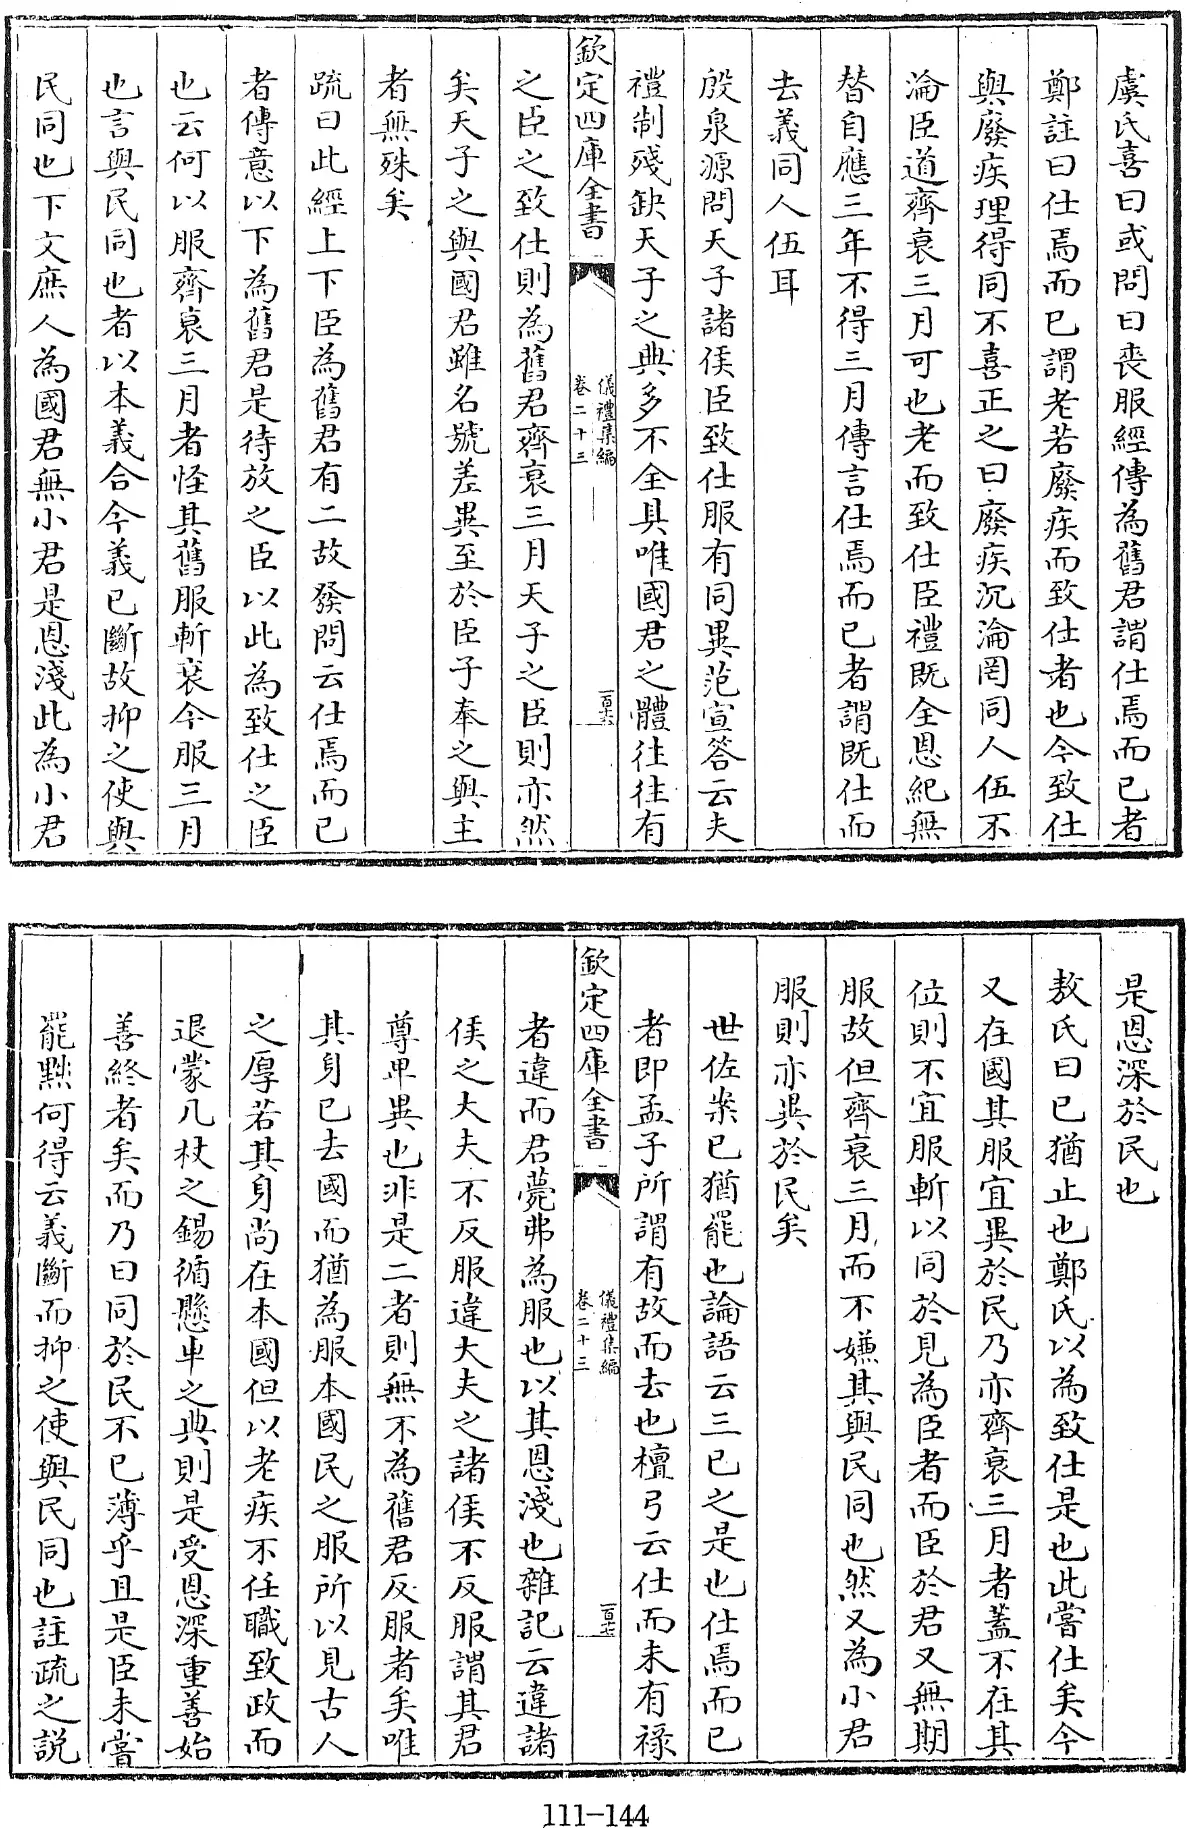 虞氏喜曰或問曰喪服經傳為舊君謂仕焉而已者
鄭註曰仕焉而已謂老若廢疾而致仕者也今致仕
與廢疾理得同不喜正之曰廢疾沉淪罔同人伍不
淪臣道齊衰三月可也老而致仕臣禮既全恩紀無
替自應三年不得三月傳言仕焉而已者謂既仕而
去義同人伍耳
殷泉源問天子諸侯臣致仕服有同異范宣答云夫
禮制殘缺天子之典多不全具唯國君之體往往有
欽定四庫全書
儀禮集編
卷二十三
一百十六
之臣之致仕則為舊君齊衰三月天子之臣則亦然
矣天子之與國君雖名號差異至於臣子奉之與主
者無殊矣
疏曰此經上下臣為舊君有二故發問云仕焉而已
者傳意以下為舊君是待放之臣以此為致仕之臣
也云何以服齊衰三月者怪其舊服斬衰今服三月
也言與民同也者以本義合今義已斷故抑之使與
民同也下文庶人為國君無小君是恩淺此為小君
是恩深於民也
敖氏曰已猶止也鄭氏以為致仕是也此嘗仕矣今
又在國其服宜異於民乃亦齊衰三月者蓋不在其
位則不宜服斬以同於見為臣者而臣於君又無期
服故但齊衰三月而不嫌其與民同也然又為小君
服則亦異於民矣
世佐案已猶罷也論語云三已之是也仕焉而已
者即孟子所謂有故而去也檀弓云仕而未有祿
欽定四庫全書
儀禮集編
卷二十三
一百十七
者違而君薨弗為服也以其恩淺也雜記云違諸
侯之大夫不反服違大夫之諸侯不反服謂其君
尊卑異也非是二者則無不為舊君反服者矣唯
其身已去國而猶為服本國民之服所以見古人
之厚若其身尚在本國但以老疾不任職致政而
退蒙几杖之錫循懸車之典則是受恩深重善始
善終者矣而乃曰同於民不已薄乎且是臣未嘗
罷黜何得云義斷而抑之使與民同也註疏之説
111-144